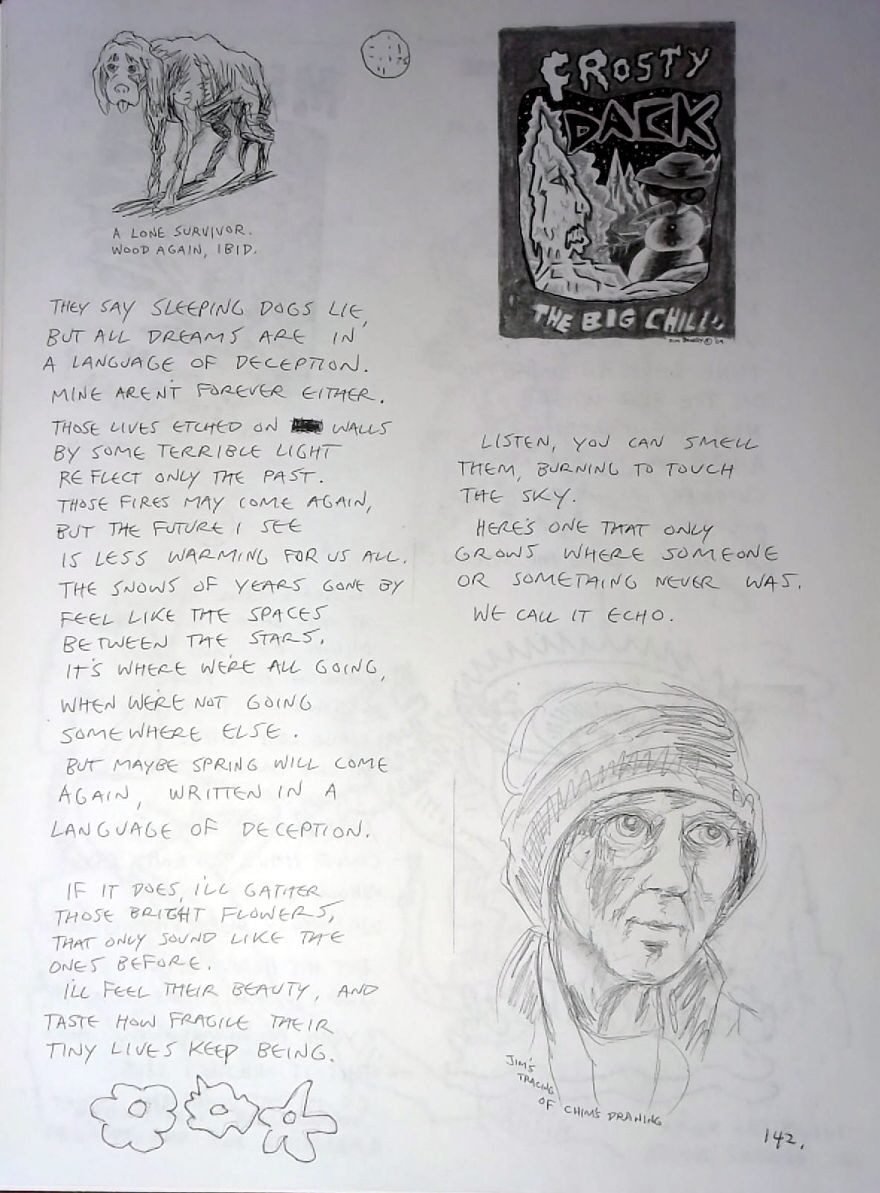 A LONE SURVIVOR.
WOOD AGAIN, IBID.
THEY SAY SLEEPING DOGS LIE,
BUT ALL DREAMS ARE IN
A LANGUAGE OF DECEPTION.
MINE AREN'T FOREVER EITHER.
THOSE LIVES ETCHED ON WALLS
BY SOME TERRIBLE LIGHT
REFLECT ONLY THE PAST.
THOSE FIRES MAY COME AGAIN,
BUT THE FUTURE I SEE
IS LESS WARMING FOR US ALL.
THE SNOWS OF YEARS GONE BY
FEEL LIKE THE SPACES
BETWEEN THE STARS.
IT'S WHERE WE'RE ALL GOING,
WHEN WE'RE NOT GOING
SOMEWHERE ELSE.
BUT MAYBE SPRING WILL COME
AGAIN, WRITTEN IN A
LANGUAGE OF DECEPTION.
IF IT DOES, I'LL GATHER
THOSE BRIGHT FLOWERS,
THAT ONLY SOUND LIKE THE
ONES BEFORE.
I'LL FEEL THEIR BEAUTY, AND
TASTE HOW FRAGILE THEIR
TINY LIVES KEEP BEING.
FROSTY
DACK
THE BIG CHILL
LISTEN, YOU CAN SMELL
THEM, BURNING TO TOUCH
THE SKY.
HERE'S ONE THAT ONLY
GROWS WHERE SOMEONE
OR SOMETHING NEVER WAS.
WE CALL IT ECHO.
JIM'S
TRACING
OF CHIM'S DRAWING
142.